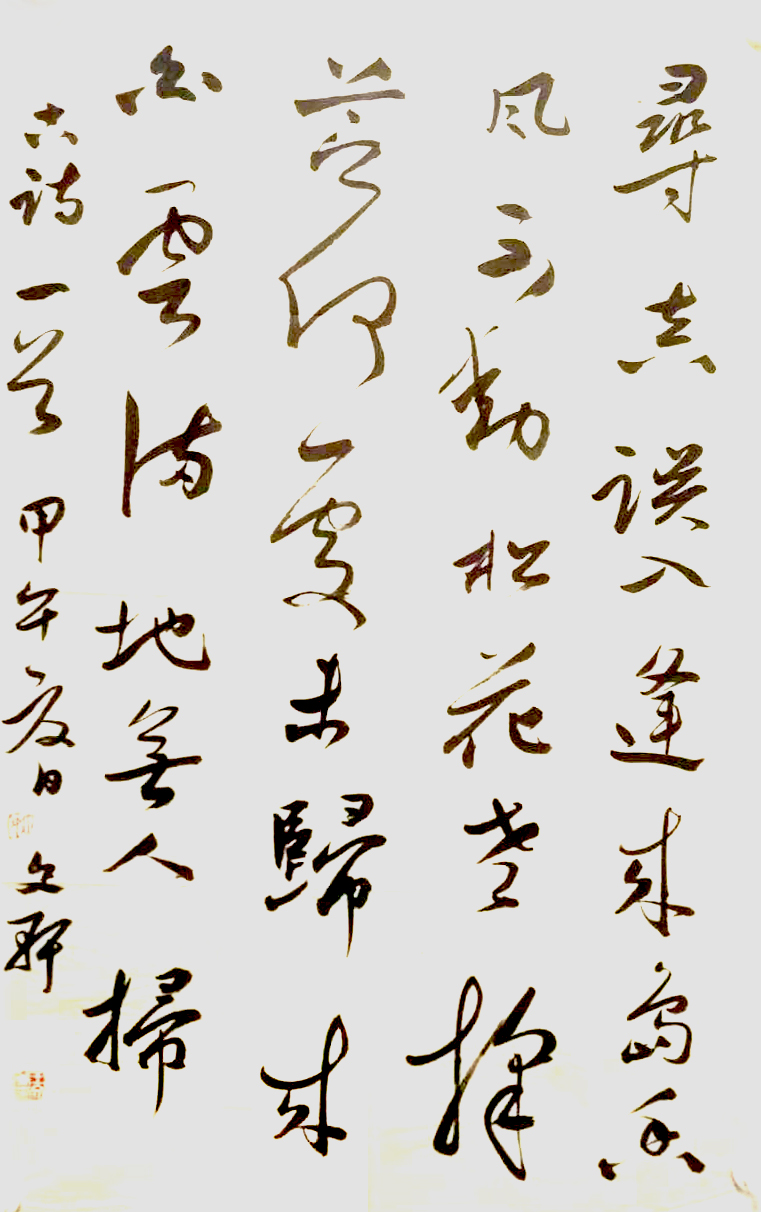 尋真誤入逢來島香
風不動松花老採
芝何處未歸來
白雲滿地無人掃
古詩一首 甲午夏日 文軒